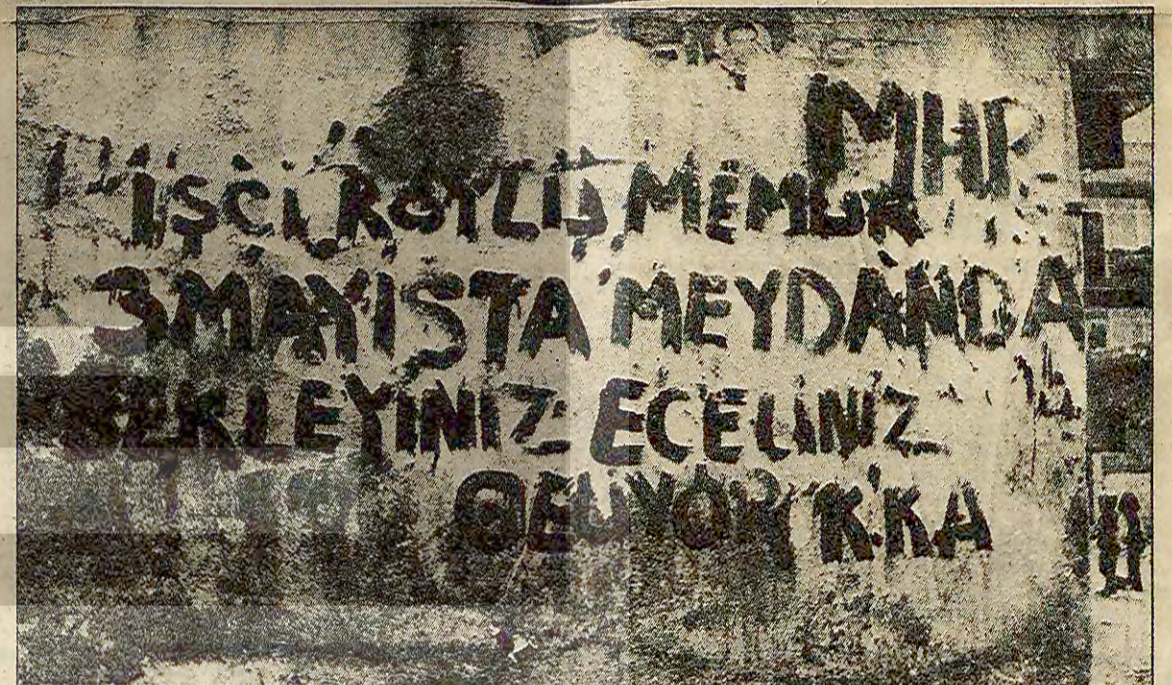 MHP
İŞÇİ, KÖYLÜ, MEMUR
3 MAYISTA MEYDANDA
BEKLEYİNİZ ECELİNİZ
GELİYOR KKA